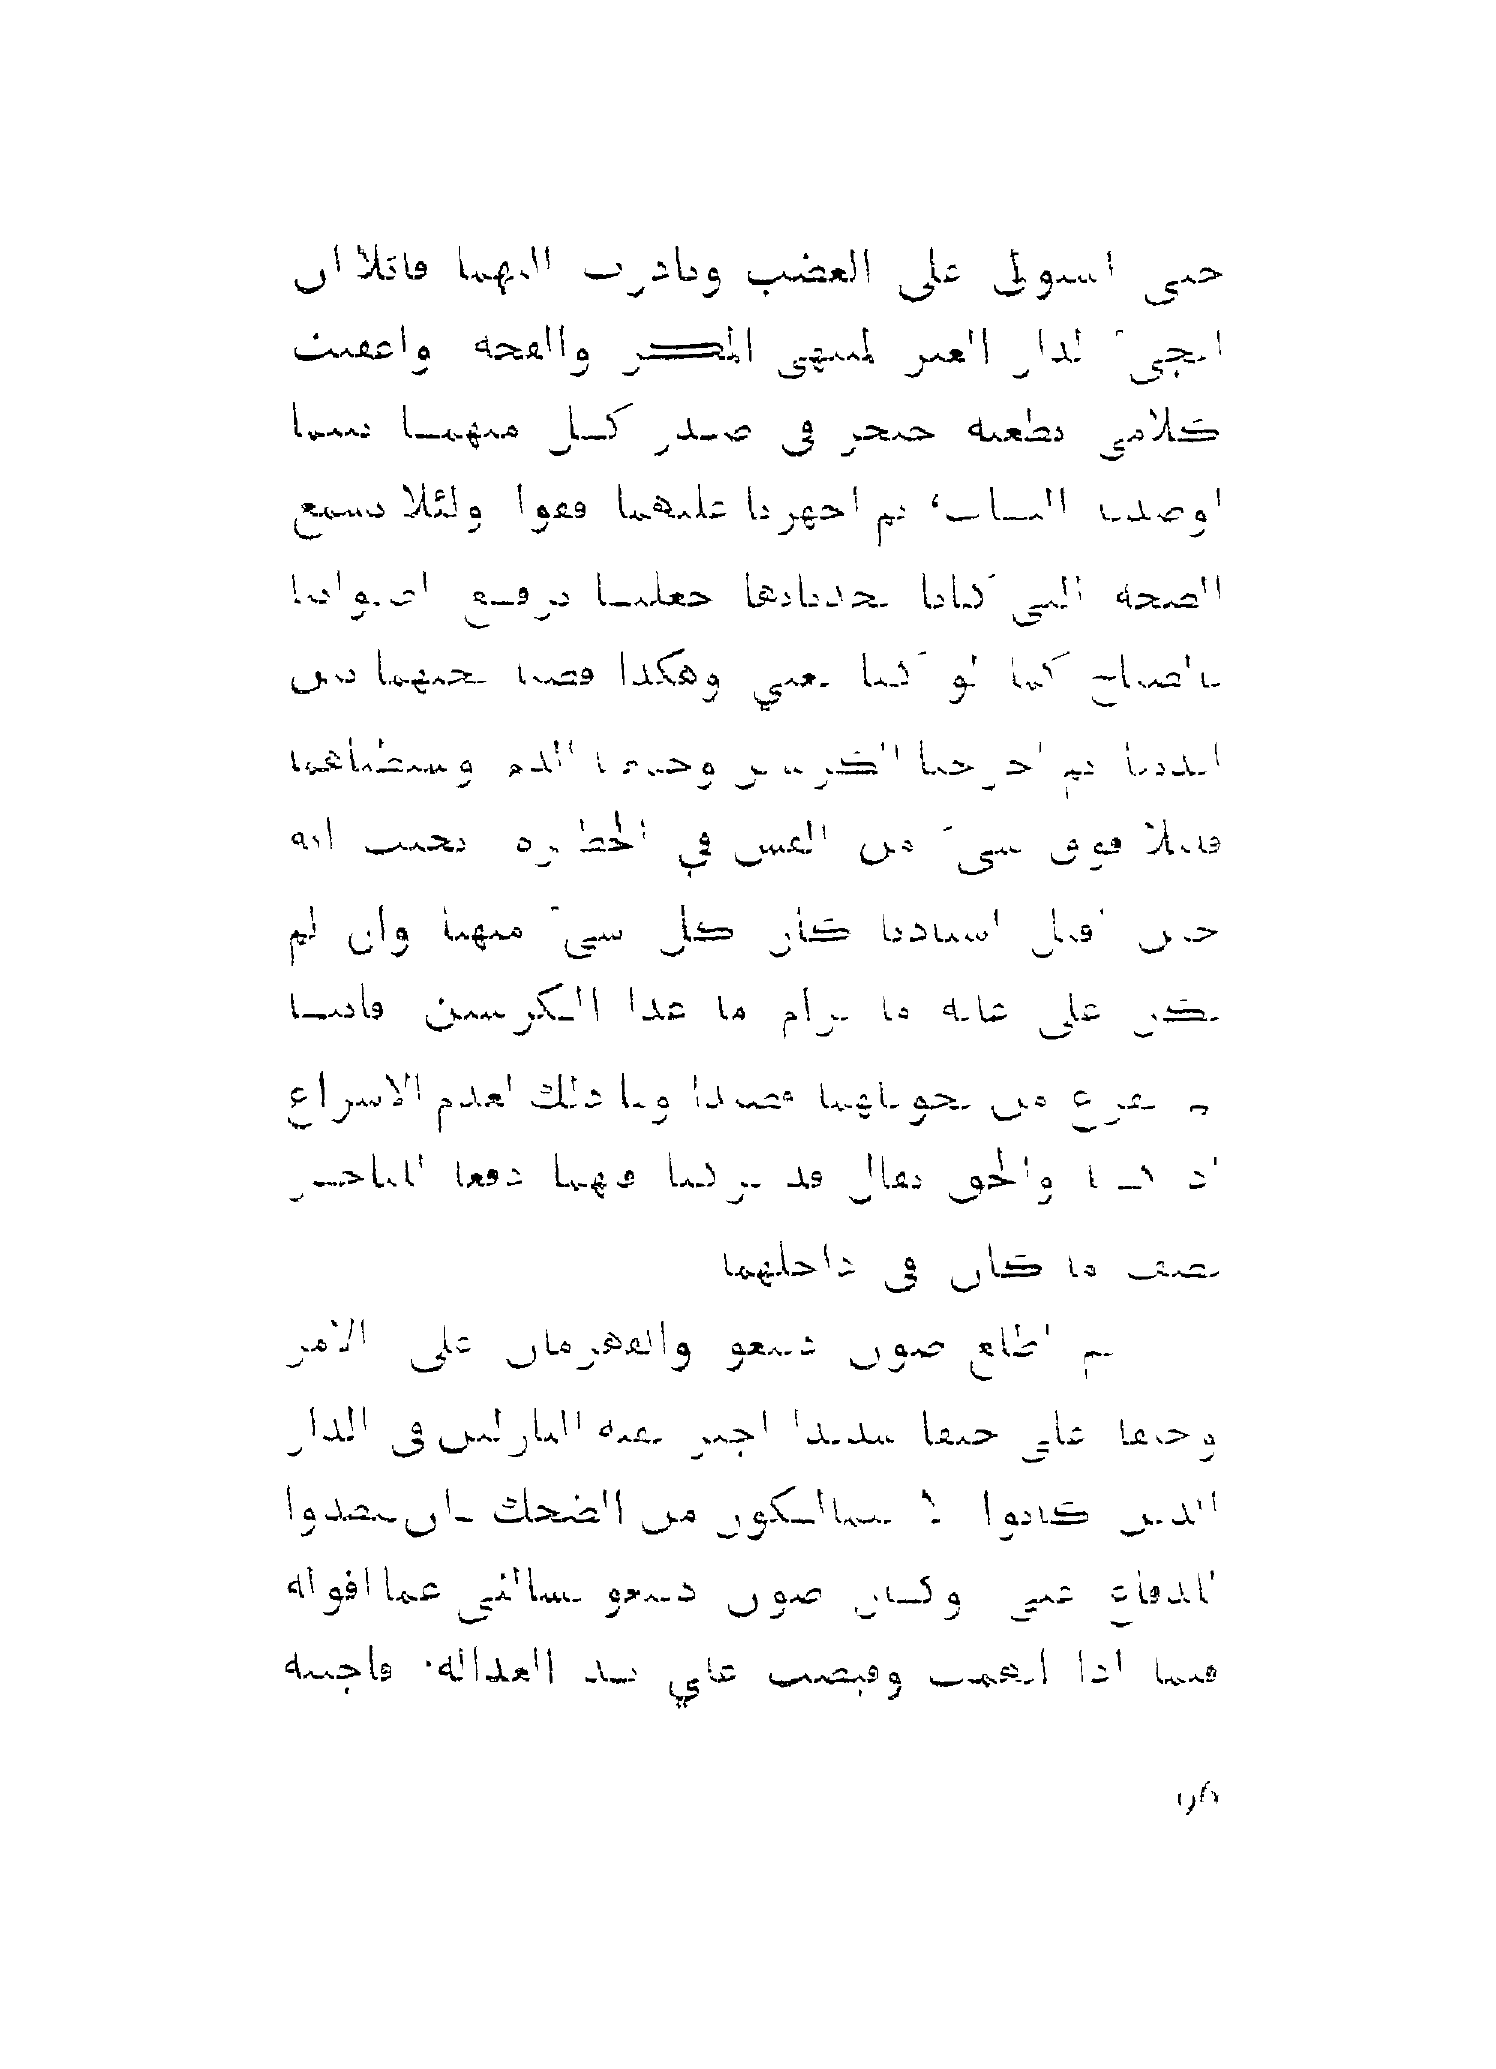 حتى استولى على الغضب وبادرت اليهما قائلا ان
لدار الغير لمنتهى المكر والقحة واعقبت
كلامي بطعنة خنجر في صدر كل منهما بينما
اوصدت الباب، ثم اجهزنا عليهما فقعوا ولئلا تسمع
الضجة التي كانا يحدثانها جعلنا نرفع اصواتنا
بالصياح كما لو كنا نغني وهكذا قضيا نحبهما بين
ايدينا ثم اخرجنا الكرسيين وحيث الدم وبسطناهما
قليلا فوق شيء من القش في الحظيرة بحيث انه
حين اقبل اسيادنا كان كل شيء مهيأ وان لم
يكن على غاية ما يرام ما عدا الكرسيين فاننا
لم نفرغ من تجويفهما قصدا وما ذلك لعدم الاسراع
اذ اننا والحق يقال قد تركنا فيهما دفعا للتأخير
نصف ما كان في داخلهما
ثم اطلع صون دييغو والقهرمان على الامر
وحنقا علي حنقا شديدا اجبر بقية النازلين في الدار
الذين كانوا لا يتمالكون من الضحك بان يتصدوا
للدفاع عني وكان صون دييغو يسألني عما اقوله
فيما اذا اتهمت وقبضت علي يد العدالة. فاجبته